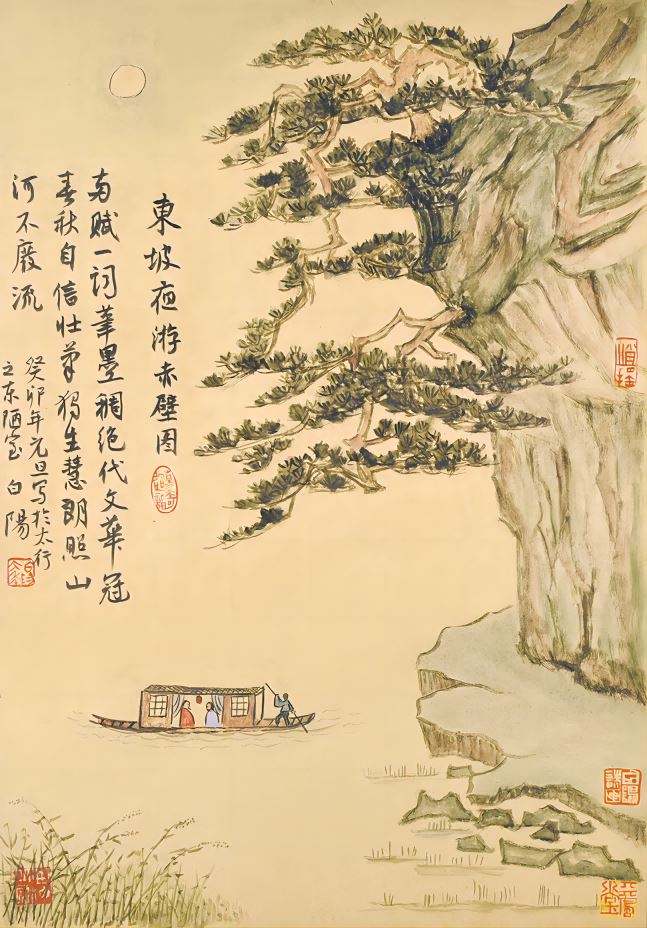 東坡夜游赤壁图
两赋一词筆墨稠绝代文華冠
春秋自信壮獨生慧朗照山
河不廢流
癸卯年元旦写於太行
之东陋室 白陽